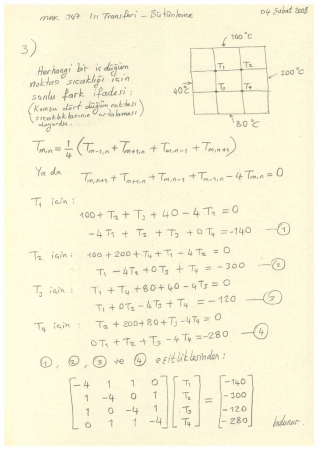 mak 347 Isı Transferi – Bütünleme
04 Şubat 2008
3)
Herhangi bir iç düğüm
noktası sıcaklığı için
sonlu fark ifadesi;
(Komşu dört düğüm noktası
sıcaklıklarının ortalaması
100 °C
T₁ T₂
T₃ T₄
200 °C
40°C
80 °C
Tm,n = 1/4 (Tm-1,n + Tm+1,n + Tm,n-1 + Tm,n+1)
Ya da Tm,n+1 + Tm+1,n + Tm,n-1 + Tm-1,n - 4 Tm,n = 0
T₁ için :
100 + T₂ + T₃ + 40 - 4 T₁ = 0
-4T₁ + T₂ + T₃ + 0T₄ = -140 —①
T₂ için : 100 + 200 + T₄ + T₁ - 4T₂ = 0
T₁ - 4T₂ + 0T₃ + T₄ = -300 —②
T₃ için : T₁ + T₄ + 80 + 40 - 4T₃ = 0
T₁ + 0T₂ - 4T₃ + T₄ = -120 —③
T₄ için : T₂ + 200 + 80 + T₃ - 4T₄ = 0
0T₁ + T₂ + T₃ - 4T₄ = -280 —④
①, ②, ③ ve ④ eşitliklerinden:
-4 1 1 0 T₁ = -140
1 -4 0 1 T₂ -300
1 0 -4 1 T₃ -120
0 1 1 -4 T₄ -280 bulunur.